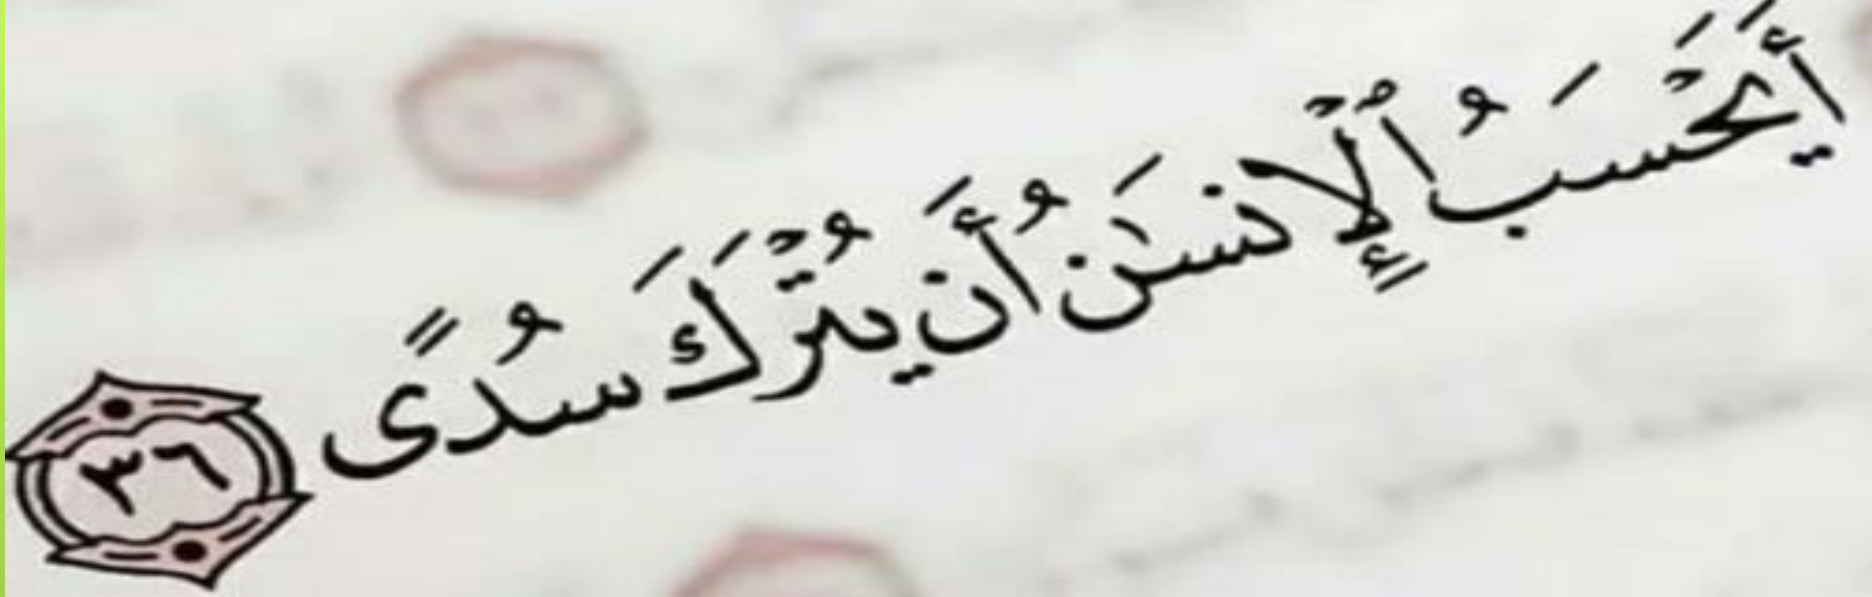 أَيَحْسَبُ ٱلْإِنسَٰنُ أَن يُتْرَكَ سُدًى ٣٦